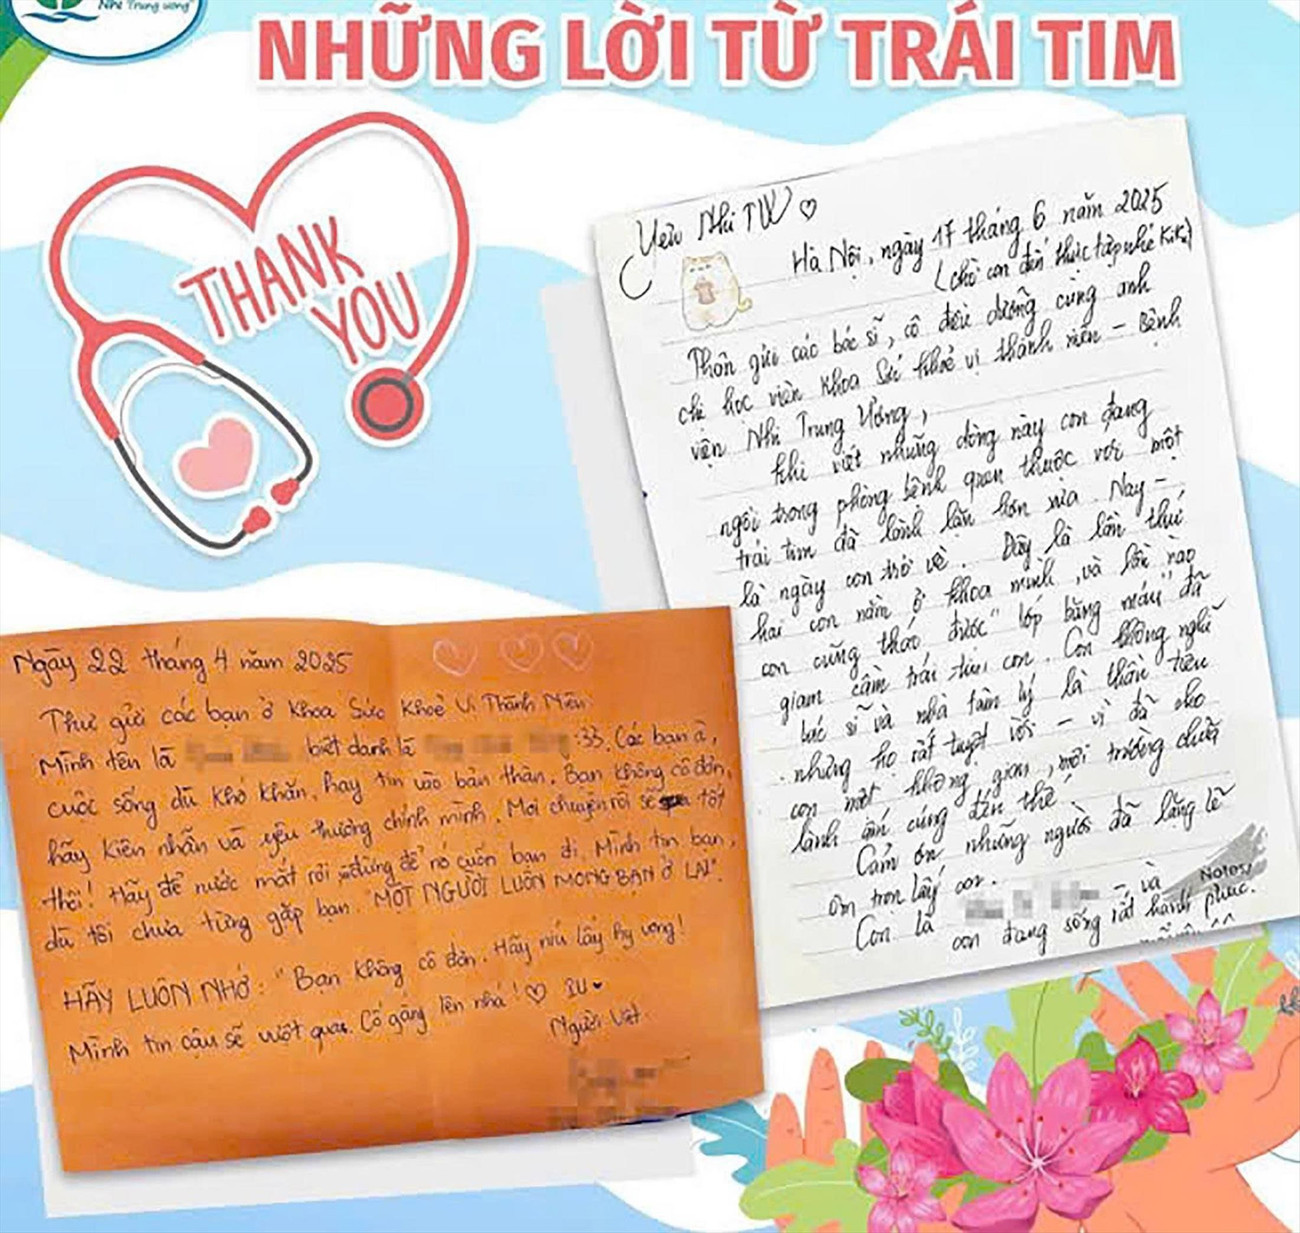 Nhi Trung ương
NHỮNG LỜI TỪ TRÁI TIM
THANK
YOU
Yêu Nhi TW ♡
Hà Nội, ngày 17 tháng 6 năm 2025
(chờ con đến thực tập nhé KiKi)
Thân gửi các bác sĩ, cô điều dưỡng cùng anh
chị học viên khoa Sức khoẻ vị thành niên - Bệnh
viện Nhi Trung Ương,
Khi viết những dòng này con đang
ngồi trong phòng bệnh quen thuộc với một
trái tim đã lành lặn hơn xưa. Nay -
là ngày con trở về. Đây là lần thứ
hai con nằm ở khoa mình, và lần nào
con cũng tháo được "lớp băng máu" đã
giam cầm trái tim con. Con không nghĩ
bác sĩ và nhà tâm lý là thần tiên
nhưng họ rất tuyệt vời - vì đã cho
con một không gian, môi trường chữa
lành ấm cúng đến thế.
Cảm ơn những người đã lặng lẽ
ôm trọn lấy con.
Con là - và
con đang sống rất hạnh phúc.
Notes
Ngày 22 tháng 4 năm 2025
Thư gửi các bạn ở Khoa Sức Khoẻ Vị Thành Niên
Mình tên là biệt danh là :33. Các bạn à,
cuộc sống dù khó khăn, hãy tin vào bản thân. Bạn không cô đơn,
hãy kiên nhẫn và yêu thương chính mình. Mọi chuyện rồi sẽ tốt
thôi! Hãy để nước mắt rơi, đừng để nó cuốn bạn đi. Mình tin bạn,
dù tôi chưa từng gặp bạn. "MỘT NGƯỜI LUÔN MONG BẠN Ở LẠI".
HÃY LUÔN NHỚ: "Bạn không cô đơn. Hãy níu lấy hy vọng!
Mình tin cậu sẽ vượt qua. Cố gắng lên nhá! ♡
Người viết